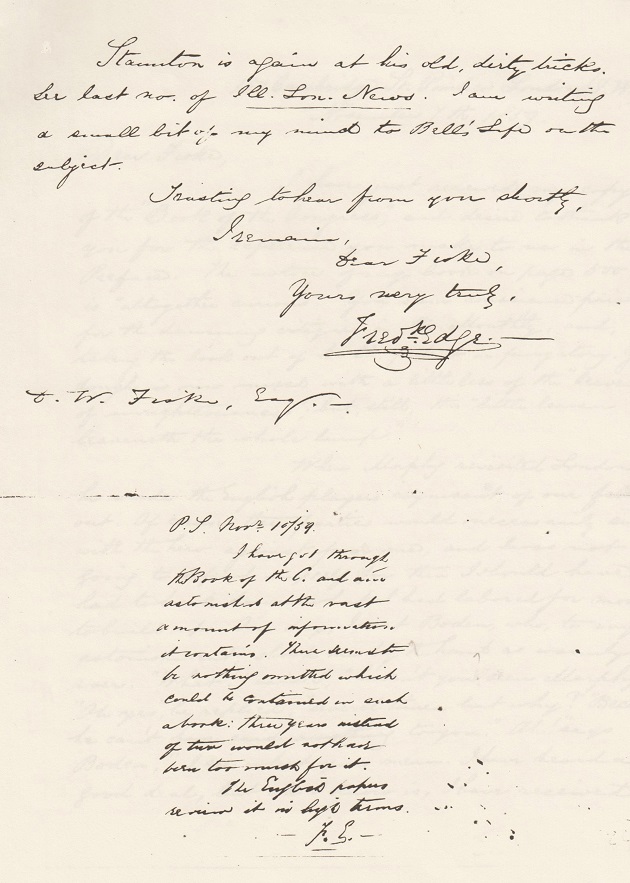 Staunton is again at his old, dirty tricks.
See last no. of Ill. Lon. News. I am writing
a small bit of my mind to Bell's Life on the
subject.
Trusting to hear from you shortly,
I remain,
Dear Fiske,
Yours very truly,
Fredk. Edge.—
D. W. Fiske, Esq.—.
P.S. Novr. 10/59.
I have got through
the Book of the C. and am
astonished at the vast
amount of information
it contains. There seems to
be nothing omitted which
could be contained in such
a book: three years instead
of two would not have
been too much for it.
The English papers
review it in high terms.
— F. E. —